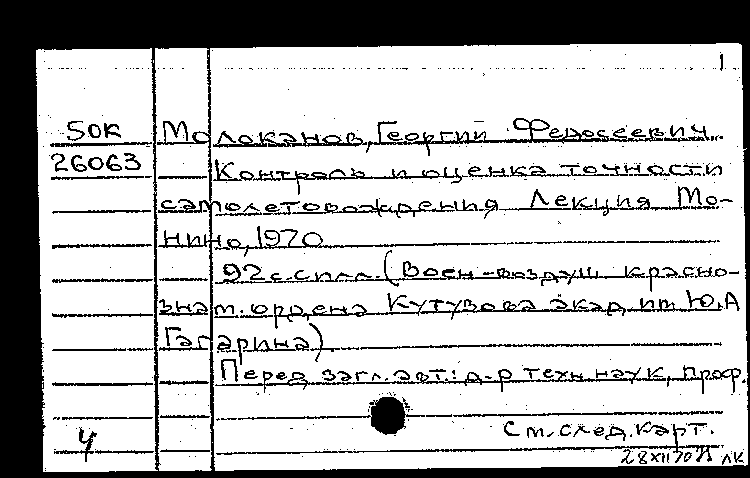 1
50К Молоканов, Георгий Федосеевич.
26063 Контроль и оценка точности
самолетовождения Лекция Мо-
нино, 1970
92 с. с илл. (Воен-воздуш красно-
знам. ордена Кутузова акад. им Ю.А
Гагарина)
Перед загл. авт.: д-р техн. наук, проф.
См. след. карт.
4
28 XII 70 ЛК